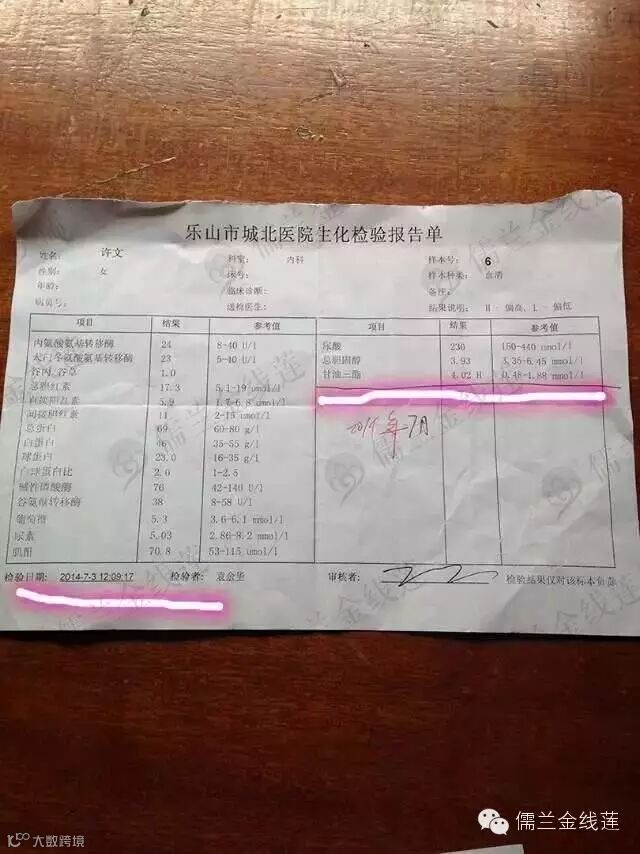 乐山市城北医院生化检验报告单
姓名: 许文 科室: 内科 样本号: 6
性别: 女 床号: 样本种类: 血清
年龄: 临床诊断: 备注:
病员号: 送检医生: 结果说明: H - 偏高、L - 偏低
项目 结果 参考值
丙氨酸氨基转移酶 24 8-40 U/l
天门冬氨酸氨基转移酶 23 5-40 U/l
谷丙、谷草 1.0
总胆红素 17.3 5.1-19 umol/l
直接胆红素 5.9 1.7-6.8 umol/l
间接胆红素 11 2-15 umol/l
总蛋白 69 60-80 g/l
白蛋白 46 35-55 g/l
球蛋白 23.0 16-35 g/l
白球蛋白比 2.0 1-2.5
碱性磷酸酶 76 42-140 U/l
谷氨酰转移酶 38 8-58 U/l
葡萄糖 5.3 3.6-6.1 mmol/l
尿素 5.03 2.86-8.2 mmol/l
肌酐 70.8 53-115 umol/l
项目 结果 参考值
尿酸 236 150-440 umol/l
总胆固醇 3.93 3.35-6.45 mmol/l
甘油三酯 4.02 H 0.48-1.88 mmol/l
2014年7月
检验日期: 2014-7-3 12:09:17 检验者: 袁会华 审核者: 检验结果仅对该标本负责
儒兰金线莲
儒兰金线莲
儒兰金线莲
儒兰金线莲
大数跨境